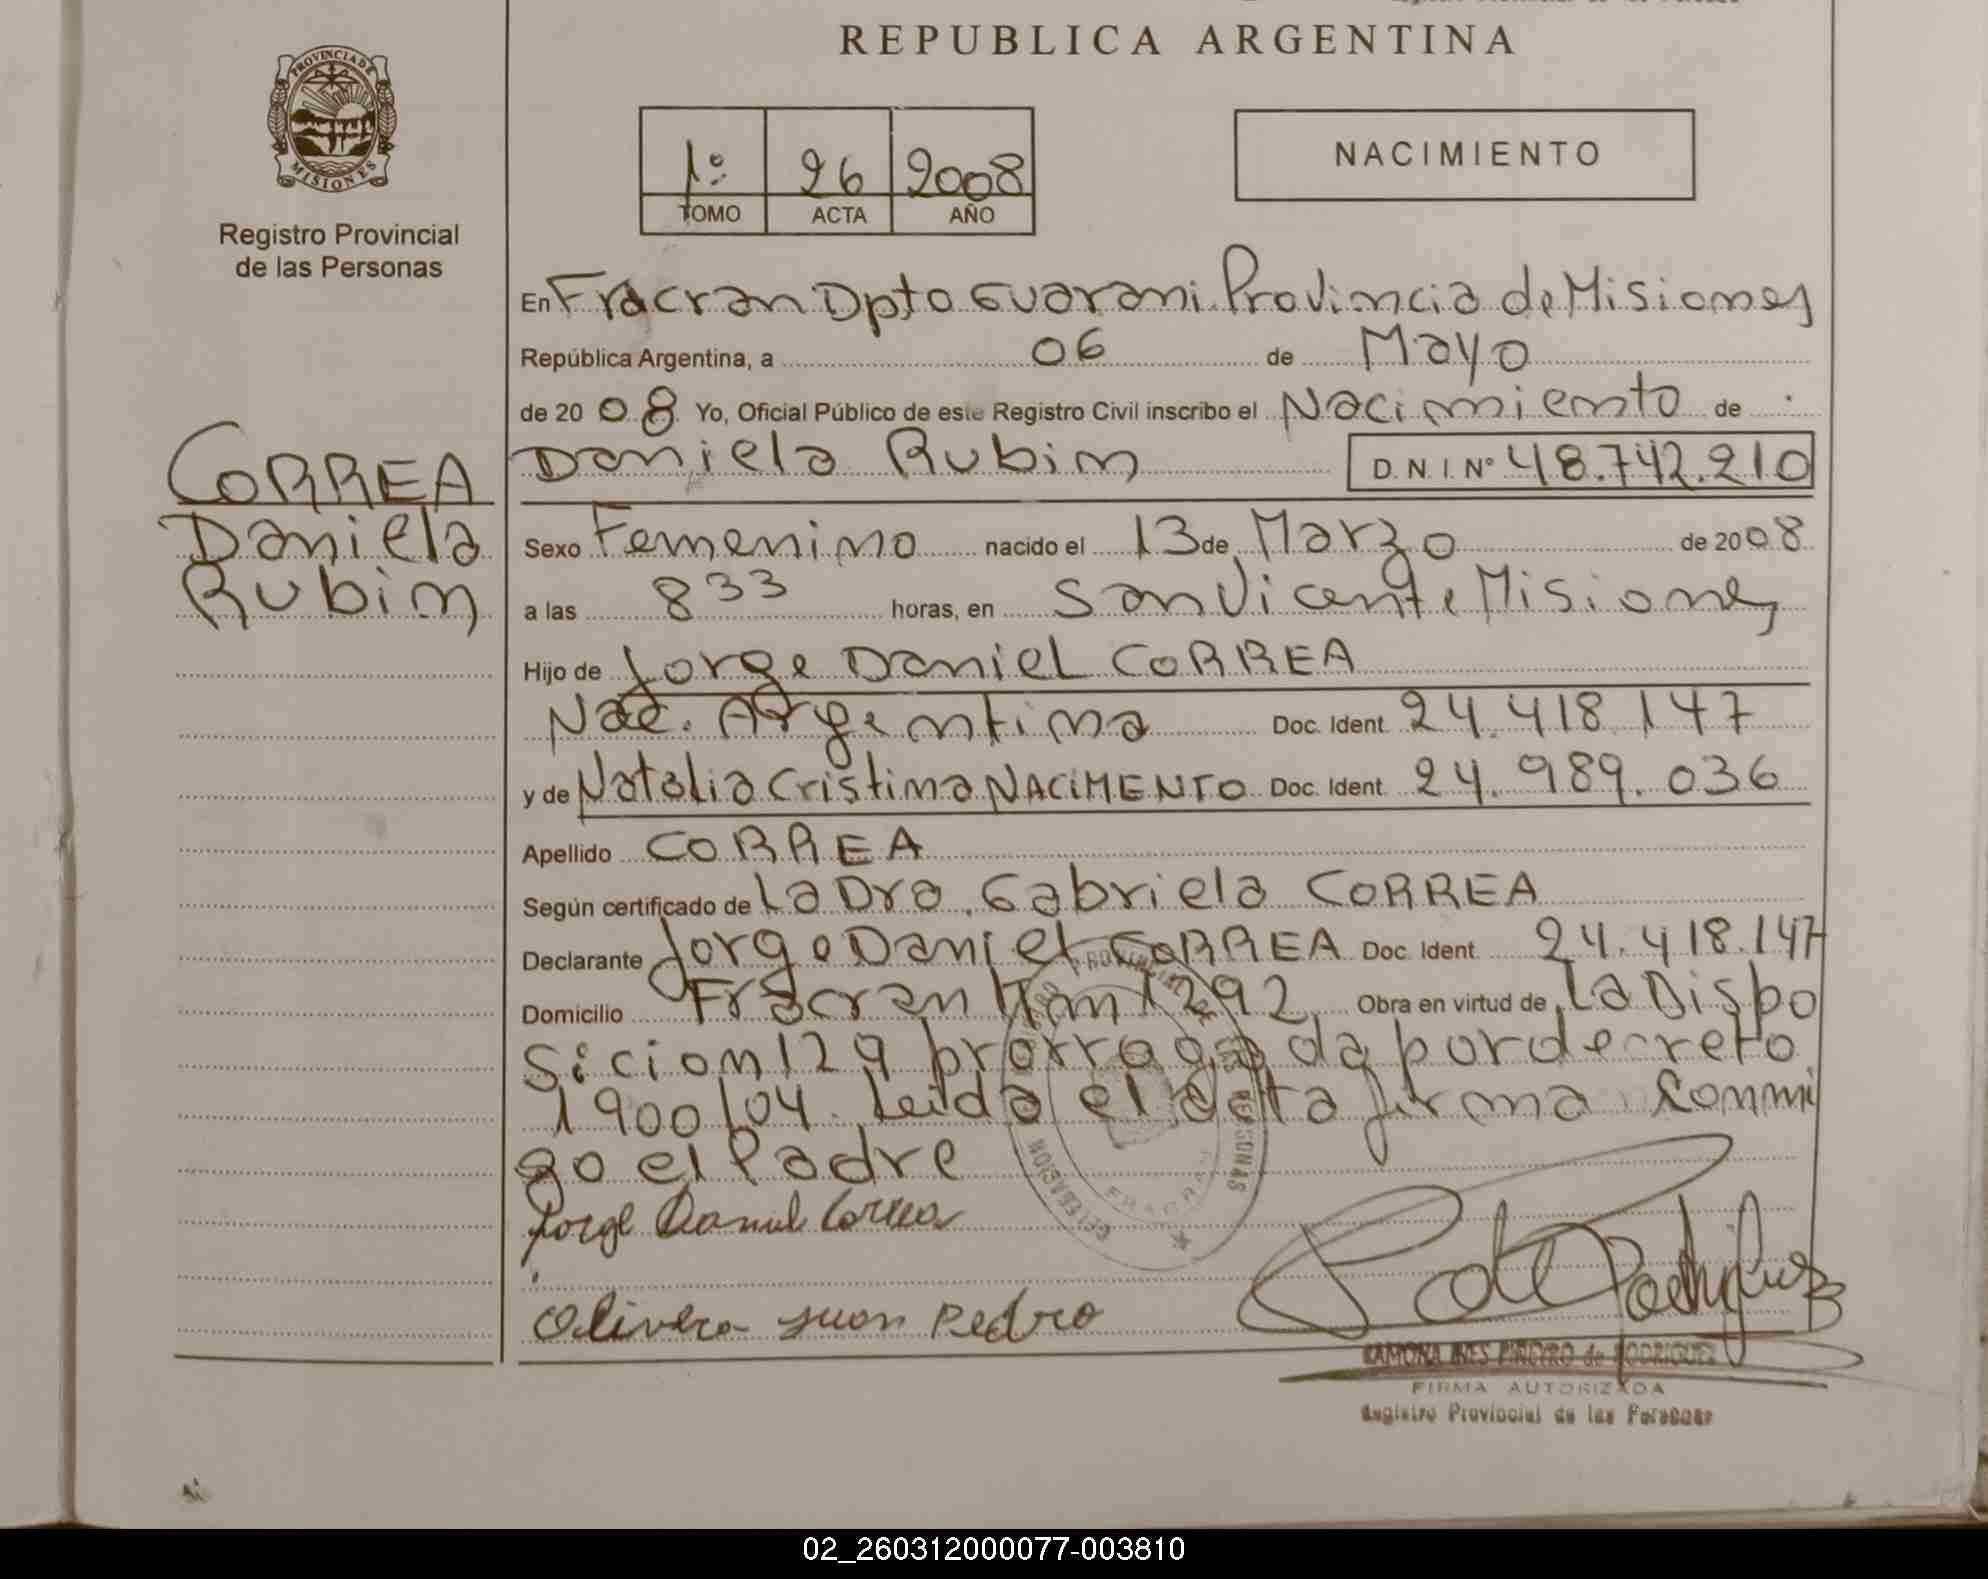 REPUBLICA ARGENTINA
PROVINCIA DE
MISIONES
Registro Provincial
de las Personas
1º 26 2008
TOMO ACTA AÑO
NACIMIENTO
En Fracran Dpto Guarani Provincia de Misiones
República Argentina, a 06 de Mayo
de 2008 Yo, Oficial Público de este Registro Civil inscribo el Nacimiento de
Daniela Rubin D.N.I. Nº 48.742.210
CORREA
Daniela
Rubin
Sexo Femenino nacido el 13 de Marzo de 2008
a las 8 33 horas, en San Vicente Misiones
Hijo de Jorge Daniel CORREA
Nac. Argentina Doc. Ident. 24.418.147
y de Natalia Cristina NACIMENTO Doc. Ident. 24.989.036
Apellido CORREA
Según certificado de La Dra. Gabriela CORREA
Declarante Jorge Daniel CORREA Doc. Ident. 24.418.147
Domicilio Fracran Km 1292 Obra en virtud de La Dispo
sicion 129 prorrogada por decreto
1900/04. Leida el acta firma conmi
go el Padre
Jorge Daniel Correa
Olivera Juan Pedro
RAMONA INES PIÑEYRO de RODRIGUEZ
FIRMA AUTORIZADA
Registro Provincial de las Personas
02_260312000077-003810